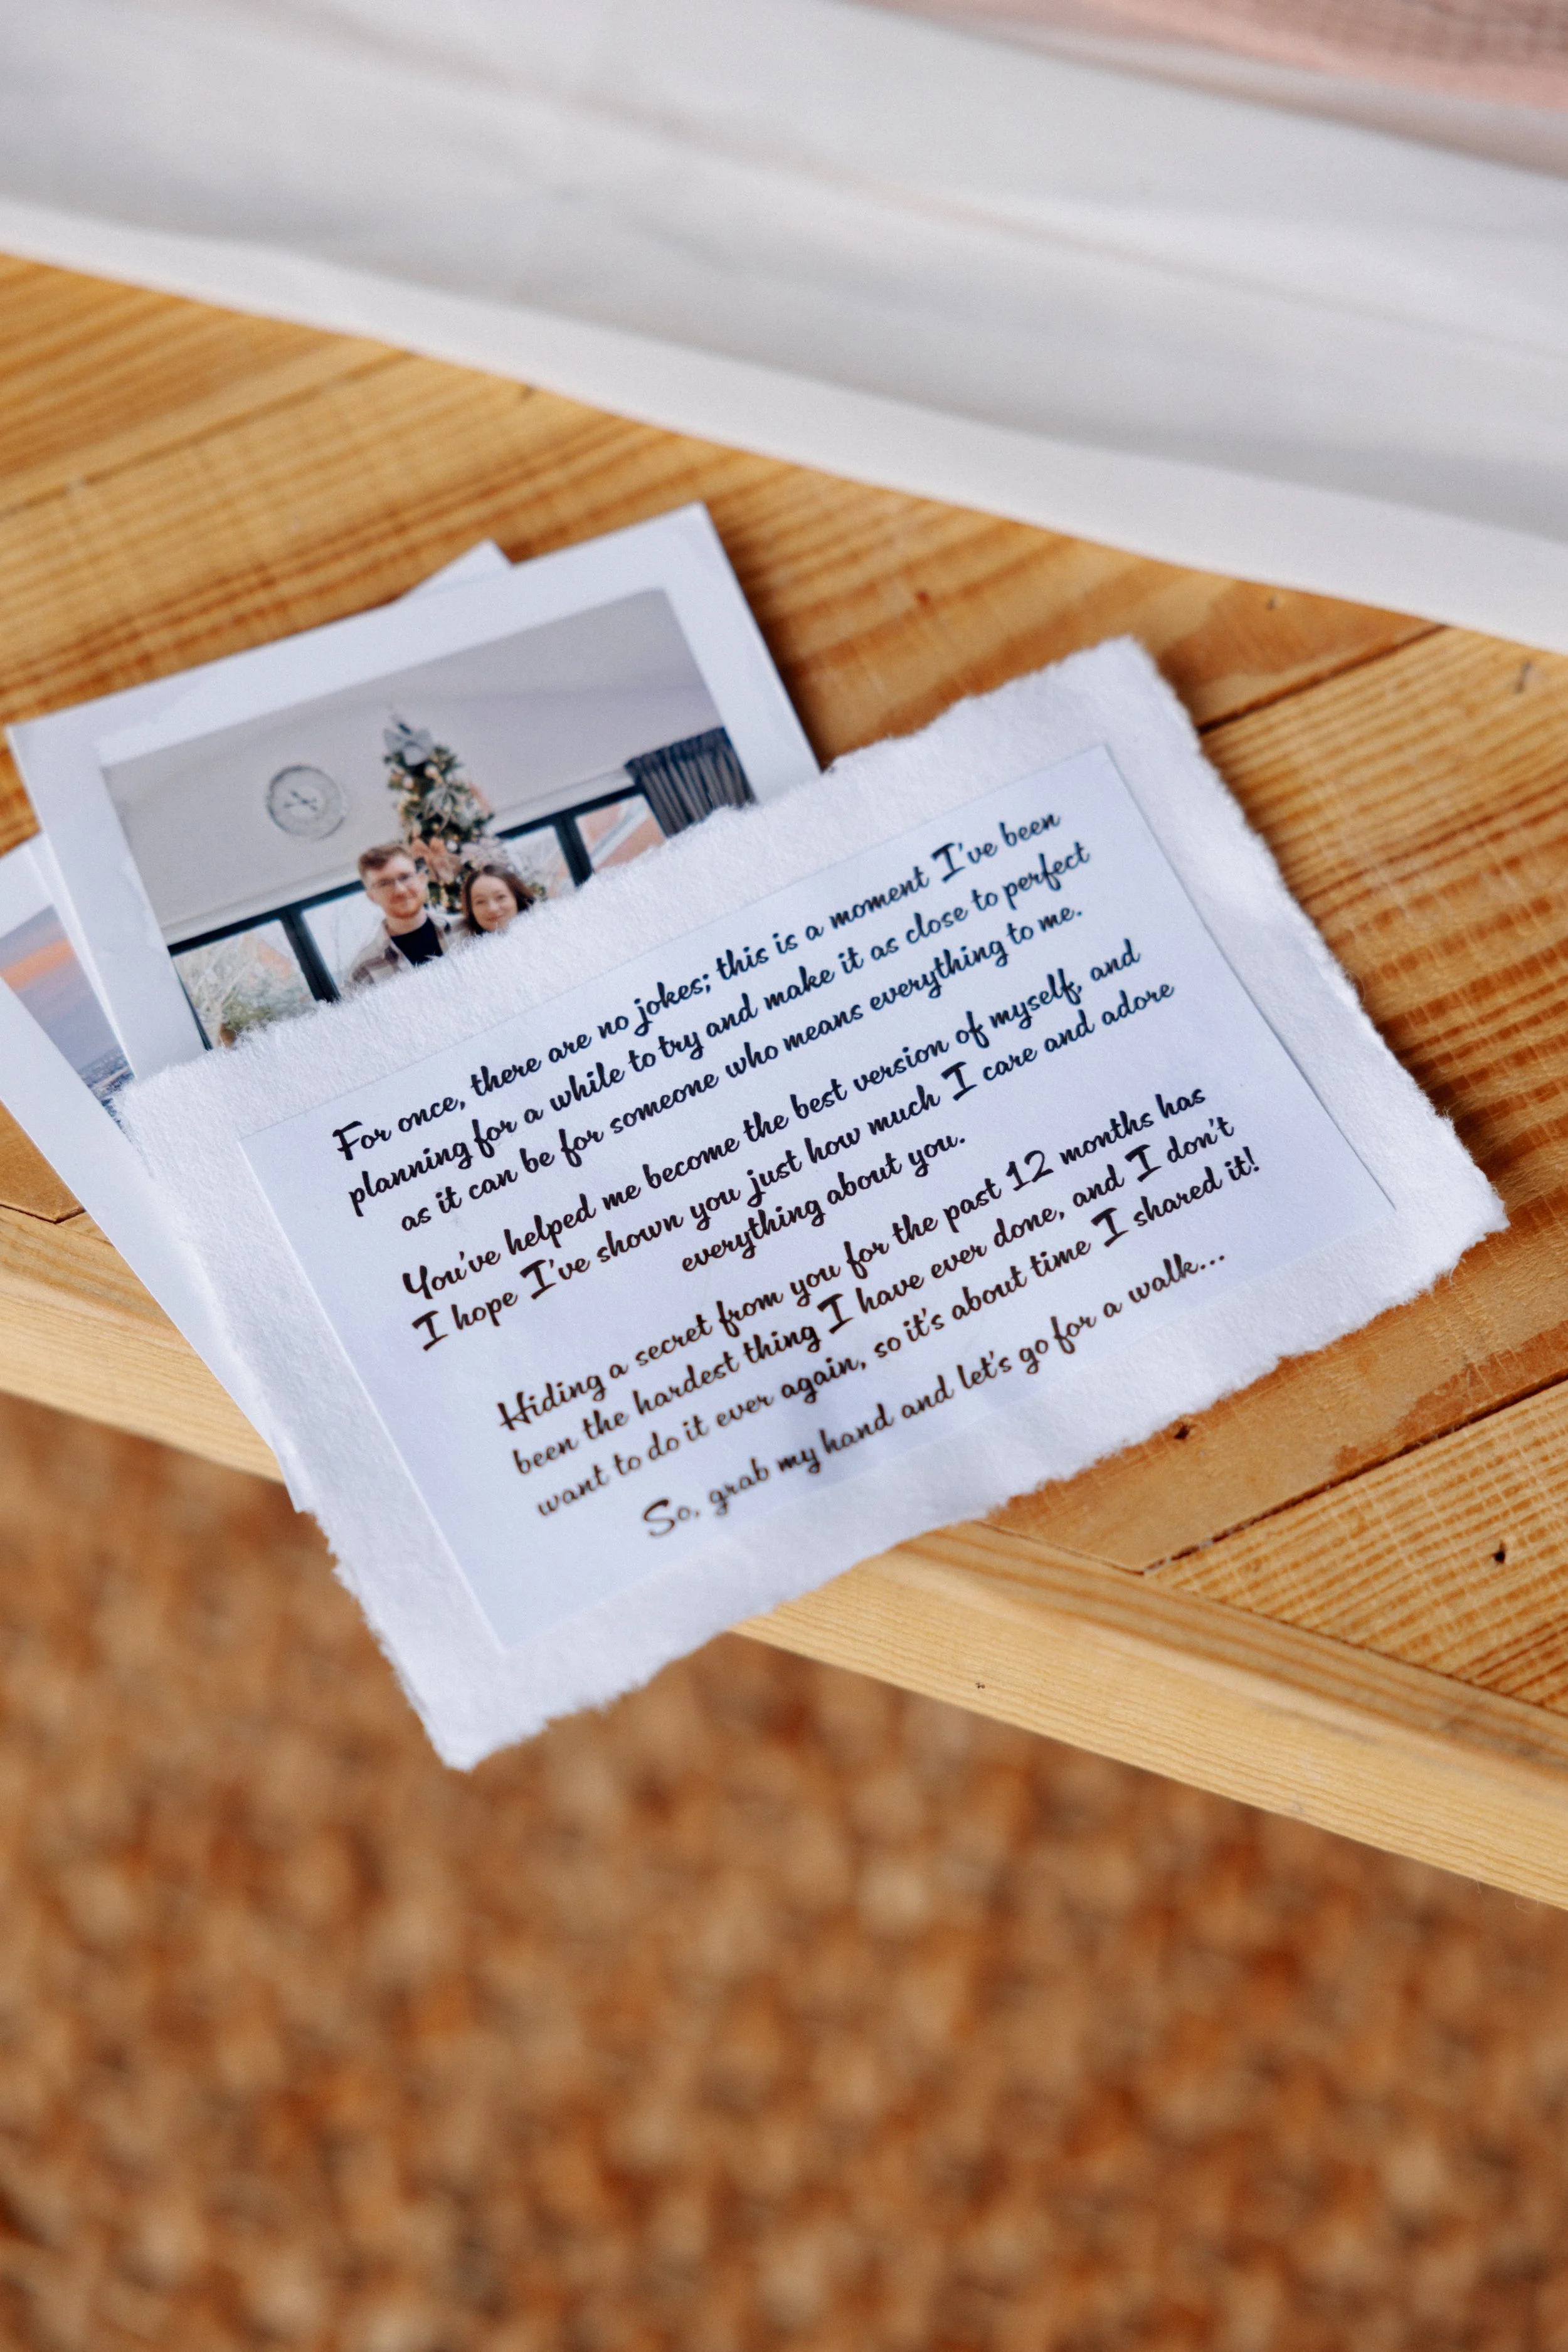 For once, there are no jokes; this is a moment I've been
planning for a while to try and make it as close to perfect
as it can be for someone who means everything to me.
You've helped me become the best version of myself, and
I hope I've shown you just how much I care and adore
everything about you.
Hiding a secret from you for the past 12 months has
been the hardest thing I have ever done, and I don't
want to do it ever again, so it's about time I shared it!
So, grab my hand and let's go for a walk...